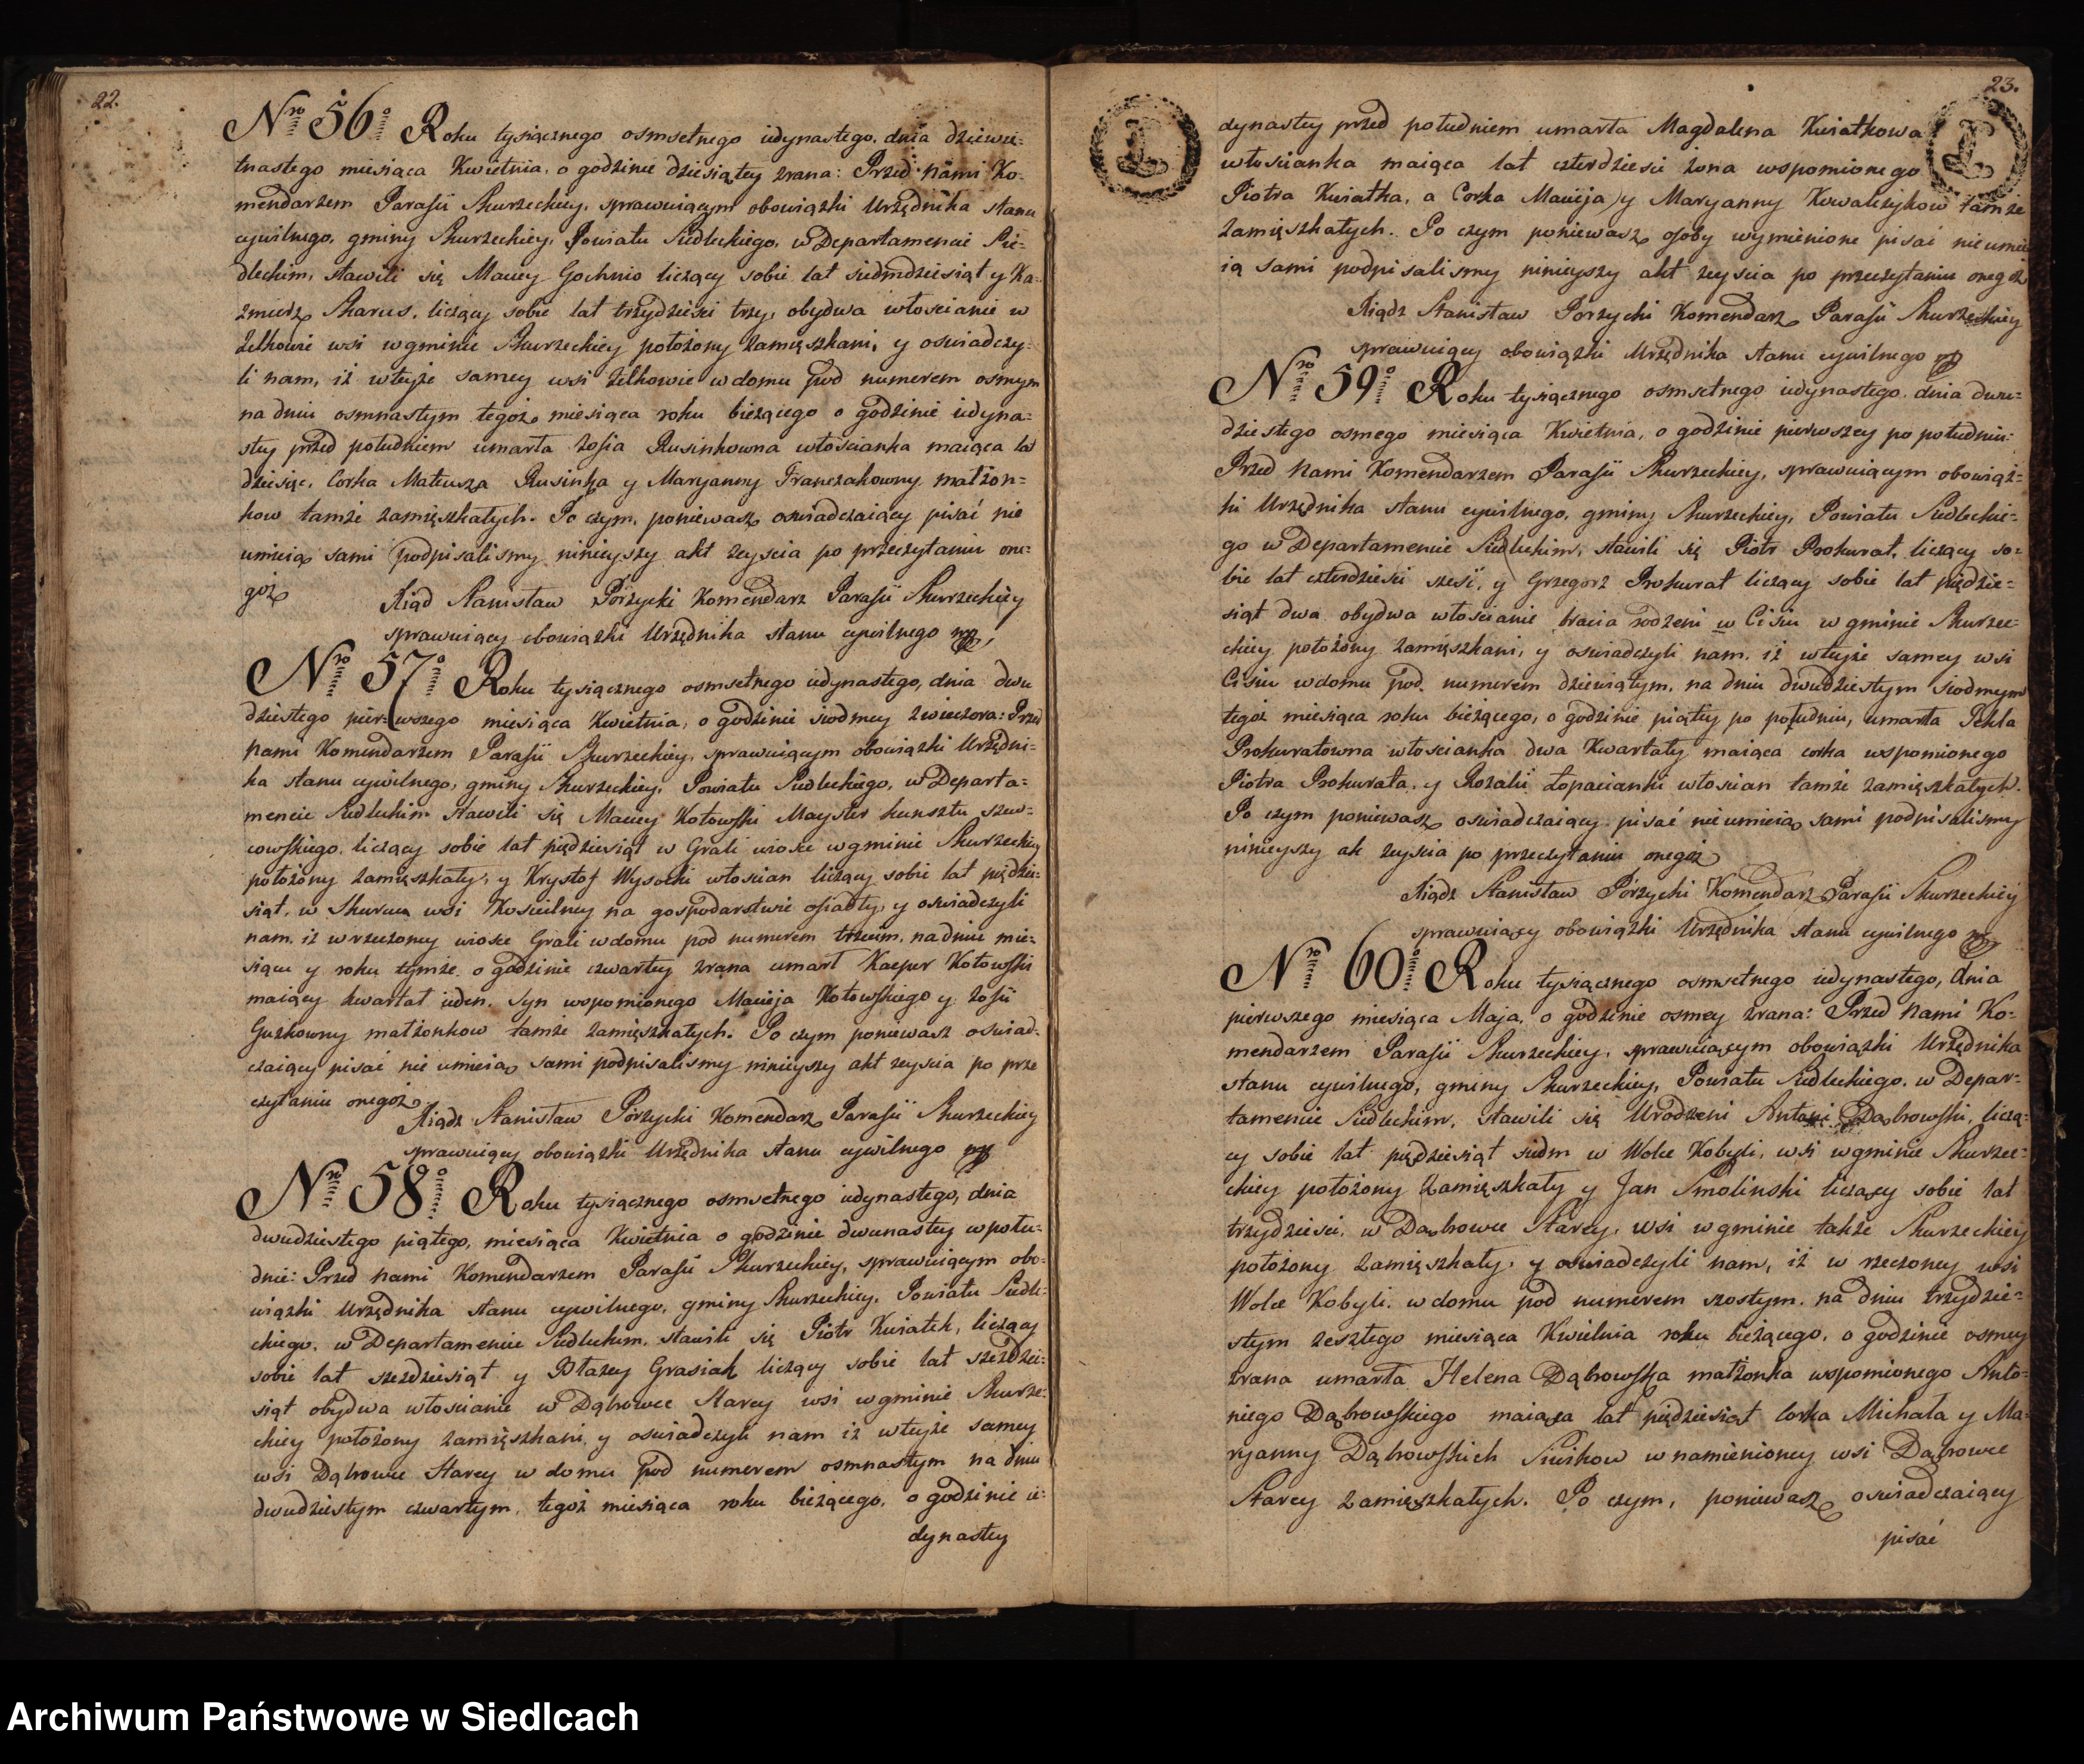 22.
Nro 56o Roku tysiącznego osmsetnego iedynastego, dnia dziewie=
tnastego miesiąca Kwietnia, o godzinie dziesiątey zrana: Przed nami Ko-
mendarzem Parafii Skurzeckiey, sprawuiącym obowiązki Urzędnika stanu
cywilnego, gminy Skurzeckiey, Powiatu Siedleckiego, w Departamencie Sie=
dleckim, stawili się Maciey Gochnio liczący sobie lat siedmdziesiąt y Ka=
zmierz Skarus, liczący sobie lat trzydzieści trzy, obydwa włościanie w
Żelkowie wsi w gminie Skurzeckiey położony zamięszkani, y oświadczy=
li nam, iż w teyże samey wsi Żelkowie w domu pod numerem osmym
na dniu osmnastym tegoż miesiąca roku bieżącego o godzinie iedyna=
stey przed południem umarła Zofia Rusinkowna włościanka maiąca lat
dziesięc, Corka Mateusza Rusinka y Maryanny Franczakowny małżon=
kow tamże zamięszkałych. Po czym, poniewasz oświadczaiący pisać nie
umieią sami podpisalismy ninieyszy akt zeyscia po przeczytaniu one=
goż
Xiąd Stanisław Pórzycki Komendarz Parafii Skurzeckiey
sprawuiący obowiązki Urzędnika stanu cywilnego mp
Nro 57o Roku tysiącznego osmsetnego iedynastego, dnia dwu
dziestego pier=wszego miesiąca Kwietnia, o godzinie siodmey z wieczora: Przed
nami Komendarzem Parafii Skurzeckiey, sprawuiącym obowiązki Urzędni=
ka stanu cywilnego, gminy Skurzeckiey, Powiatu Siedleckiego, w Departa=
mencie Siedleckim stawili się Maciey Kotowski Mayster kunsztu szew=
cowskiego, liczący sobie lat piędziesiąt w Grali wiosce w gminie Skurzeckiey
położony zamięszkały, y Krysztof Wysocki włościan liczący sobie lat piędzie=
siąt, w Skurcu wsi Kościelney na gospodarstwie osiadły, y oświadczyli
nam, iż w rzeczoney wiosce Grali w domu pod numerem trzecim, na dniu mie=
siącu y roku tymże o godzinie czwartey zrana umarł Kasper Kotowski
maiący kwartał ieden, Syn wspomionego Macieja Kotowskiego y Zofii
Guzkowny małżonkow tamże zamięszkałych. Po czym poniewasz oświad=
czaiący pisać nie umieią sami podpisalismy ninieyszy akt zeyscia po prze
czytaniu onegoż.
Xiądz Stanisław Pórzycki Komendarz Parafii Skurzeckiey
sprawuiący obowiązki Urzędnika stanu cywilnego mp
Nro 58o Roku tysiącznego osmsetnego iedynastego, dnia
dwudziestego piątego, miesiąca Kwietnia o godzinie dwunastey w połu=
dnie: Przed nami Komendarzem Parafii Skurzeckiey, sprawuiącym obo=
wiązki Urzędnika stanu cywilnego, gminy Skurzeckiey, Powiatu Siedle=
ckiego, w Departamencie Siedleckim, stawili się Piotr Kwiatek, liczący
sobie lat szezdziesiąt y Błażey Grasiak liczący sobie lat szezdzie=
siąt obydwa włościanie w Dąbrowce Starey wsi w gminie Skurze=
ckiey położony zamięszkani, y oświadczyli nam iż w teyże samey
wsi Dąbrowce Starey w domu pod numerem osmnastym na dniu
dwudziestym czwartym, tegoż miesiąca roku bieżącego, o godzinie ie=
dynastey
23.
dynastey przed południem umarła Magdalena Kwiatkowa
włościanka maiąca lat czterdzieści żona wspomionego
Piotra Kwiatka, a Corka Macieja y Maryanny Kowalczykow tamże
zamięszkałych. Po czym poniewasz osoby wymienione pisać nie umie
ią sami podpisalismy ninieyszy akt zeyscia po przeczytaniu onegoż
Xiądz Stanisław Porzycki Komendarz Parafii Skurzeckiey
sprawuiący obowiązki Urzędnika stanu cywilnego mp
Nro 59o Roku tysiącznego osmsetnego iedynastego, dnia dwu=
dziestego osmego miesiąca Kwietnia, o godzinie pierwszey po południu:
Przed Nami Komendarzem Parafii Skurzeckiey, sprawuiącym obowiąz=
ki Urzędnika stanu cywilnego, gminy Skurzeckiey, Powiatu Siedleckie=
go w Departamencie Siedleckim, stawili się Piotr Prokurat, liczący so=
bie lat czterdzieści szesć, y Grzegorz Prokurat liczący sobie lat piędzie=
siąt dwa obydwa włościanie bracia rodzeni w Cisiu w gminie Skurzec=
kiey położony zamięszkani, y oświadczyli nam, iż w teyże samey wsi
Cisiu w domu pod numerem dziewiątym, na dniu dwudziestym siodmym
tegoż miesiąca roku bieżącego, o godzinie piątey po południu, umarła Tekla
Prokuratowna włościanka dwa Kwartały maiąca corka wspomionego
Piotra Prokurata, y Rozalii Łopacianki włościan tamże zamięszkałych.
Po czym poniewasz oświadczaiący pisać nie umieią sami podpisalismy
ninieyszy ak zeyscia po przeczytaniu onegoż
Xiądz Stanisław Pórzycki Komendarz Parafii Skurzeckiey
sprawuiący obowiązki Urzędnika stanu cywilnego mp
Nro 60o Roku tysiącznego osmsetnego iedynastego, dnia
pierwszego miesiąca Maja, o godzinie osmey zrana: Przed Nami Ko=
mendarzem Parafii Skurzeckiey, sprawuiącym obowiązki Urzędnika
stanu cywilnego, gminy Skurzeckiey, Powiatu Siedleckiego, w Depar=
tamencie Siedleckim, stawili się Urodzeni Antoni Dąbrowski, liczą=
cy sobie lat piędziesiąt siedm w Wolce Kobyli, wsi w gminie Skurzec=
ckiey położony zamięszkały y Jan Smolinski liczący sobie lat
trzydzieści, w Dąbrowce Starey, wsi w gminie także Skurzeckiey
położony zamięszkały, y oświadczyli nam, iż w rzeczoney wsi
Wolce Kobyli, w domu pod numerem szostym, na dniu trzydzie=
stym zeszłego miesiąca Kwietnia roku bieżącego, o godzinie osmey
zrana umarła Helena Dąbrowska małżonka wspomionego Anto=
niego Dąbrowskiego maiąca lat piędziesiąt Corka Michała y Ma=
ryanny Dąbrowskich w namienioney wsi Dąbrowce
Starey zamięszkałych. Po czym, poniewasz oświadczaiący
pisać
Archiwum Państwowe w Siedlcach